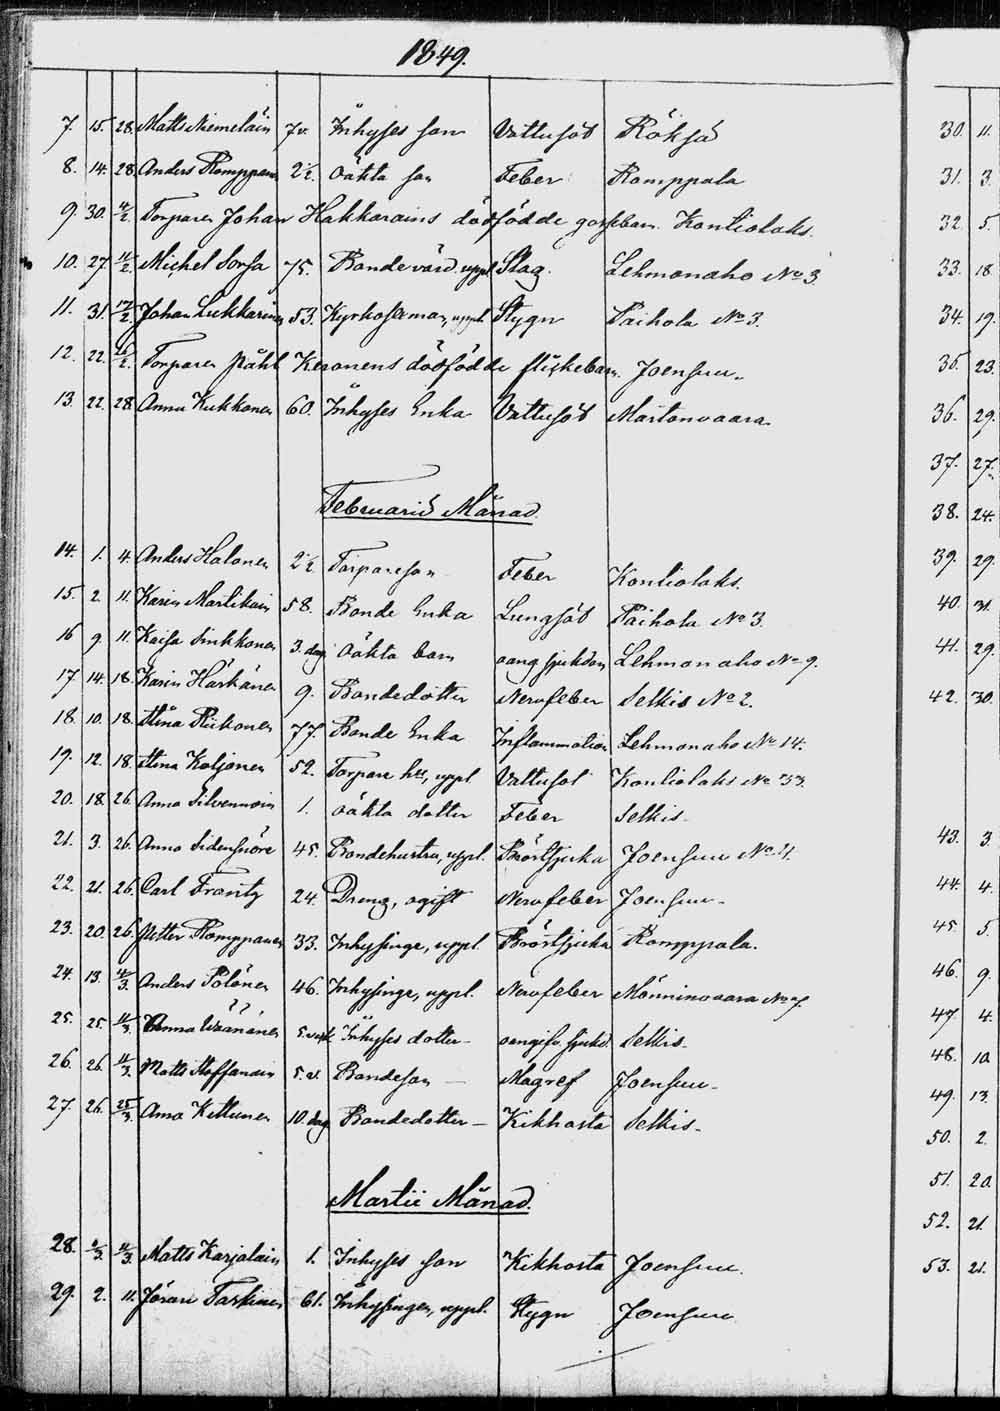 1849.
7. 15. 28. Matts Niemeläin 7 v. Inhyses son Vattusot Röksä
8. 14. 28. Anders Romppan 2½. oäkta son Feber Romppala
9. 30. 4/2. Torparen Johan Hakkarains dödfödde gossebarn Kontiolaks.
10. 27. 11/2. Michel Sorsa 75. Bonde värd. uppl Slag. Lehmonaho No 3.
11. 31. 12/2. Johan Lukkarinen 53. uppl. Stygn Paihola No 3.
12. 22. 2. Torparen Påhl Keronens dödfödde flickebarn. Joensuu.
13. 22. 28. Anna Kukkonen 60. Inhyses Enka Vattusot Martonvaara
Februarii Månad.
14. 1. 4. Anders Halonen 2½. Torpareson Feber Kontiolaks.
15. 2. 11. Karin Martikain 58. Bonde Enka Lungsot Paihola No 3.
16 9. 11. Kaisa Sinkkonen 3. dag oäkta barn oang sjukdom Lehmonaho No 9.
17 14. 18. Karin Härkänen 9. Bondedotter Nervfeber Selkis No 2.
18. 10. 18. Stina Riikonen 77. Bonde Enka Inflammation Lehmonaho No 14.
19. 12. 18. Stina Koljonen 52. Torpare hu, uppl Vattusot Kontiolaks No 33.
20. 18. 26. Anna Silvennoin 1. oäkta dotter Feber Selkis.
21. 3. 26. Anna Sidensnöre 45. Bondehustru, uppl. Bröstsjuka Joensuu No 4.
22. 21. 26. Carl Frantz 24. Dreng, ogift Nervfeber Joensuu.
23. 20. 26. Petter Romppanen 33. Inhysinge, uppl. Bröstsjuka Romppala.
24. 13. 4/3. Anders Pölönen 46. Inhysinge, uppl. Nervfeber Mönninvaara No 7.
25. 25. 11/3. Anna Wäänänen 5. veck Inhyses dotter - oangifv. sjukd. Selkis.
26. 26. 11/3. Matts Stoffanain 5. v. Bondeson - Magref Joensuu.
27. 26. 25/3. Anna Kettunen 10. dag Bondedotter - Kikhosta Selkis.
Martii Månad.
28. 2/3. 11/3. Matts Karjalain 1. Inhyses son Kikhosta Joensuu.
29. 2. 11. Jöran Taskinen 61. Inhysingen, uppl. Stygn Joensuu
30. 11.
31. 3.
32. 5.
33. 18.
34. 19.
35. 23.
36. 29.
37. 27.
38. 24.
39. 29.
40. 31.
41. 29.
42. 30.
43. 3.
44. 4.
45. 5.
46. 9.
47 4.
48. 10.
49. 13.
50. 2.
51. 20.
52. 21.
53. 21.